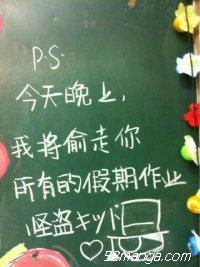 P.S.
今天晚上,
我将偷走你
所有的假期作业
怪盗キッド
52manga.com